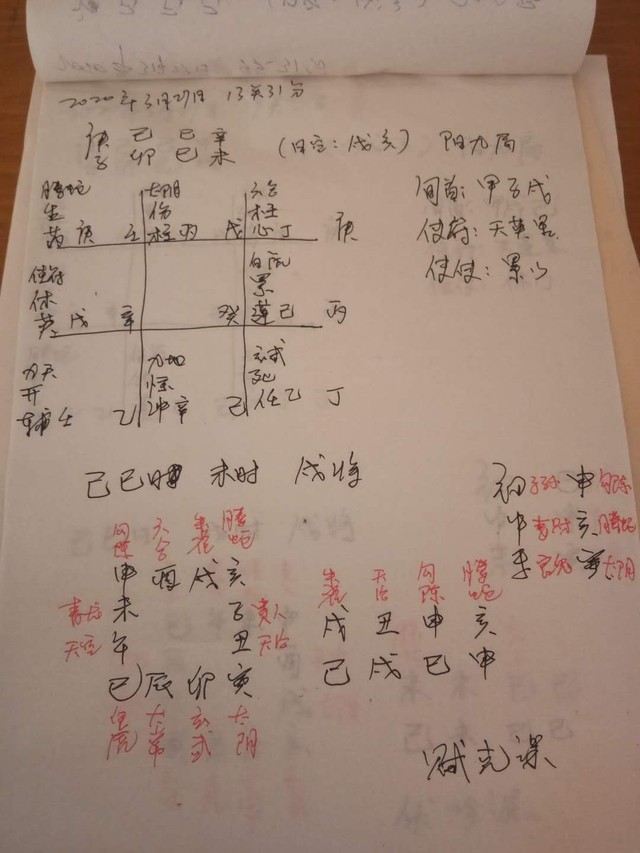 2020年3月27日 13点31分
庚 己 己 辛
子 卯 巳 未 (日空:戌亥) 阳九局
旬首:甲子戊
值符:天英星
值使:景门
螣蛇 太阴 六合
生 伤 杜
芮 庚 壬 柱 丙 戊 心 丁 庚
值符 白虎
休 景
英 戊 辛 癸 蓬 己 丙
九天 九地 玄武
开 惊 死
辅 壬 乙 冲 辛 己 任 乙 丁
己巳日 未时 戌将
初 子孙 申 勾陈
中 妻财 亥 螣蛇
季 官鬼 寅 太阴
勾陈 六合 朱雀 螣蛇
申 酉 戌 亥
青龙 未 子 贵人
天空 午 丑 天后
巳 辰 卯 寅
白虎 太常 玄武 太阴
朱雀 天后 勾陈 螣蛇
戌 丑 申 亥
己 戌 巳 申
贼克课